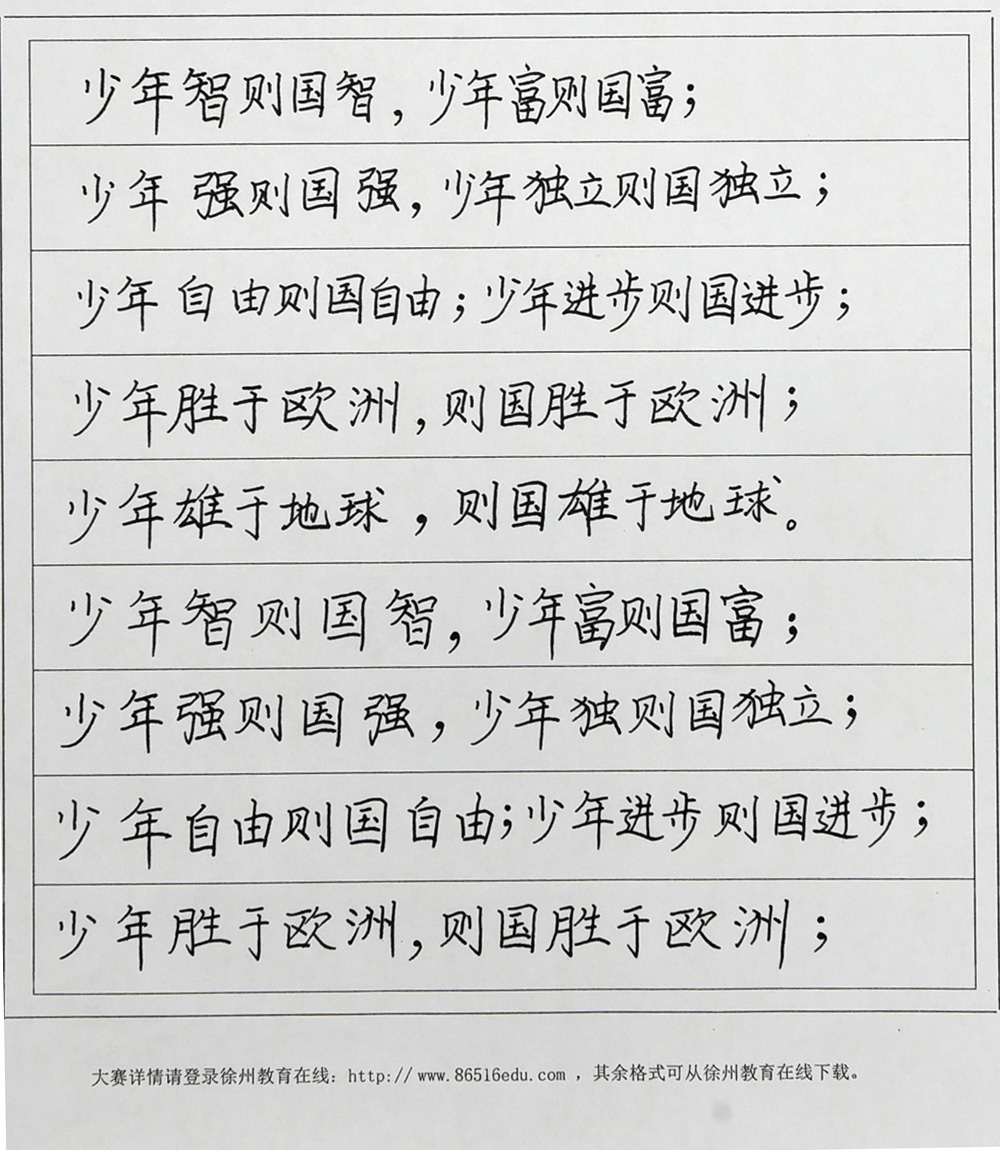 少年智则国智，少年富则国富；
少年强则国强，少年独立则国独立；
少年自由则国自由；少年进步则国进步；
少年胜于欧洲，则国胜于欧洲；
少年雄于地球，则国雄于地球。
少年智则国智，少年富则国富；
少年强则国强，少年独则国独立；
少年自由则国自由；少年进步则国进步；
少年胜于欧洲，则国胜于欧洲；
大赛详情请登录徐州教育在线：http://www.86516edu.com，其余格式可从徐州教育在线下载。